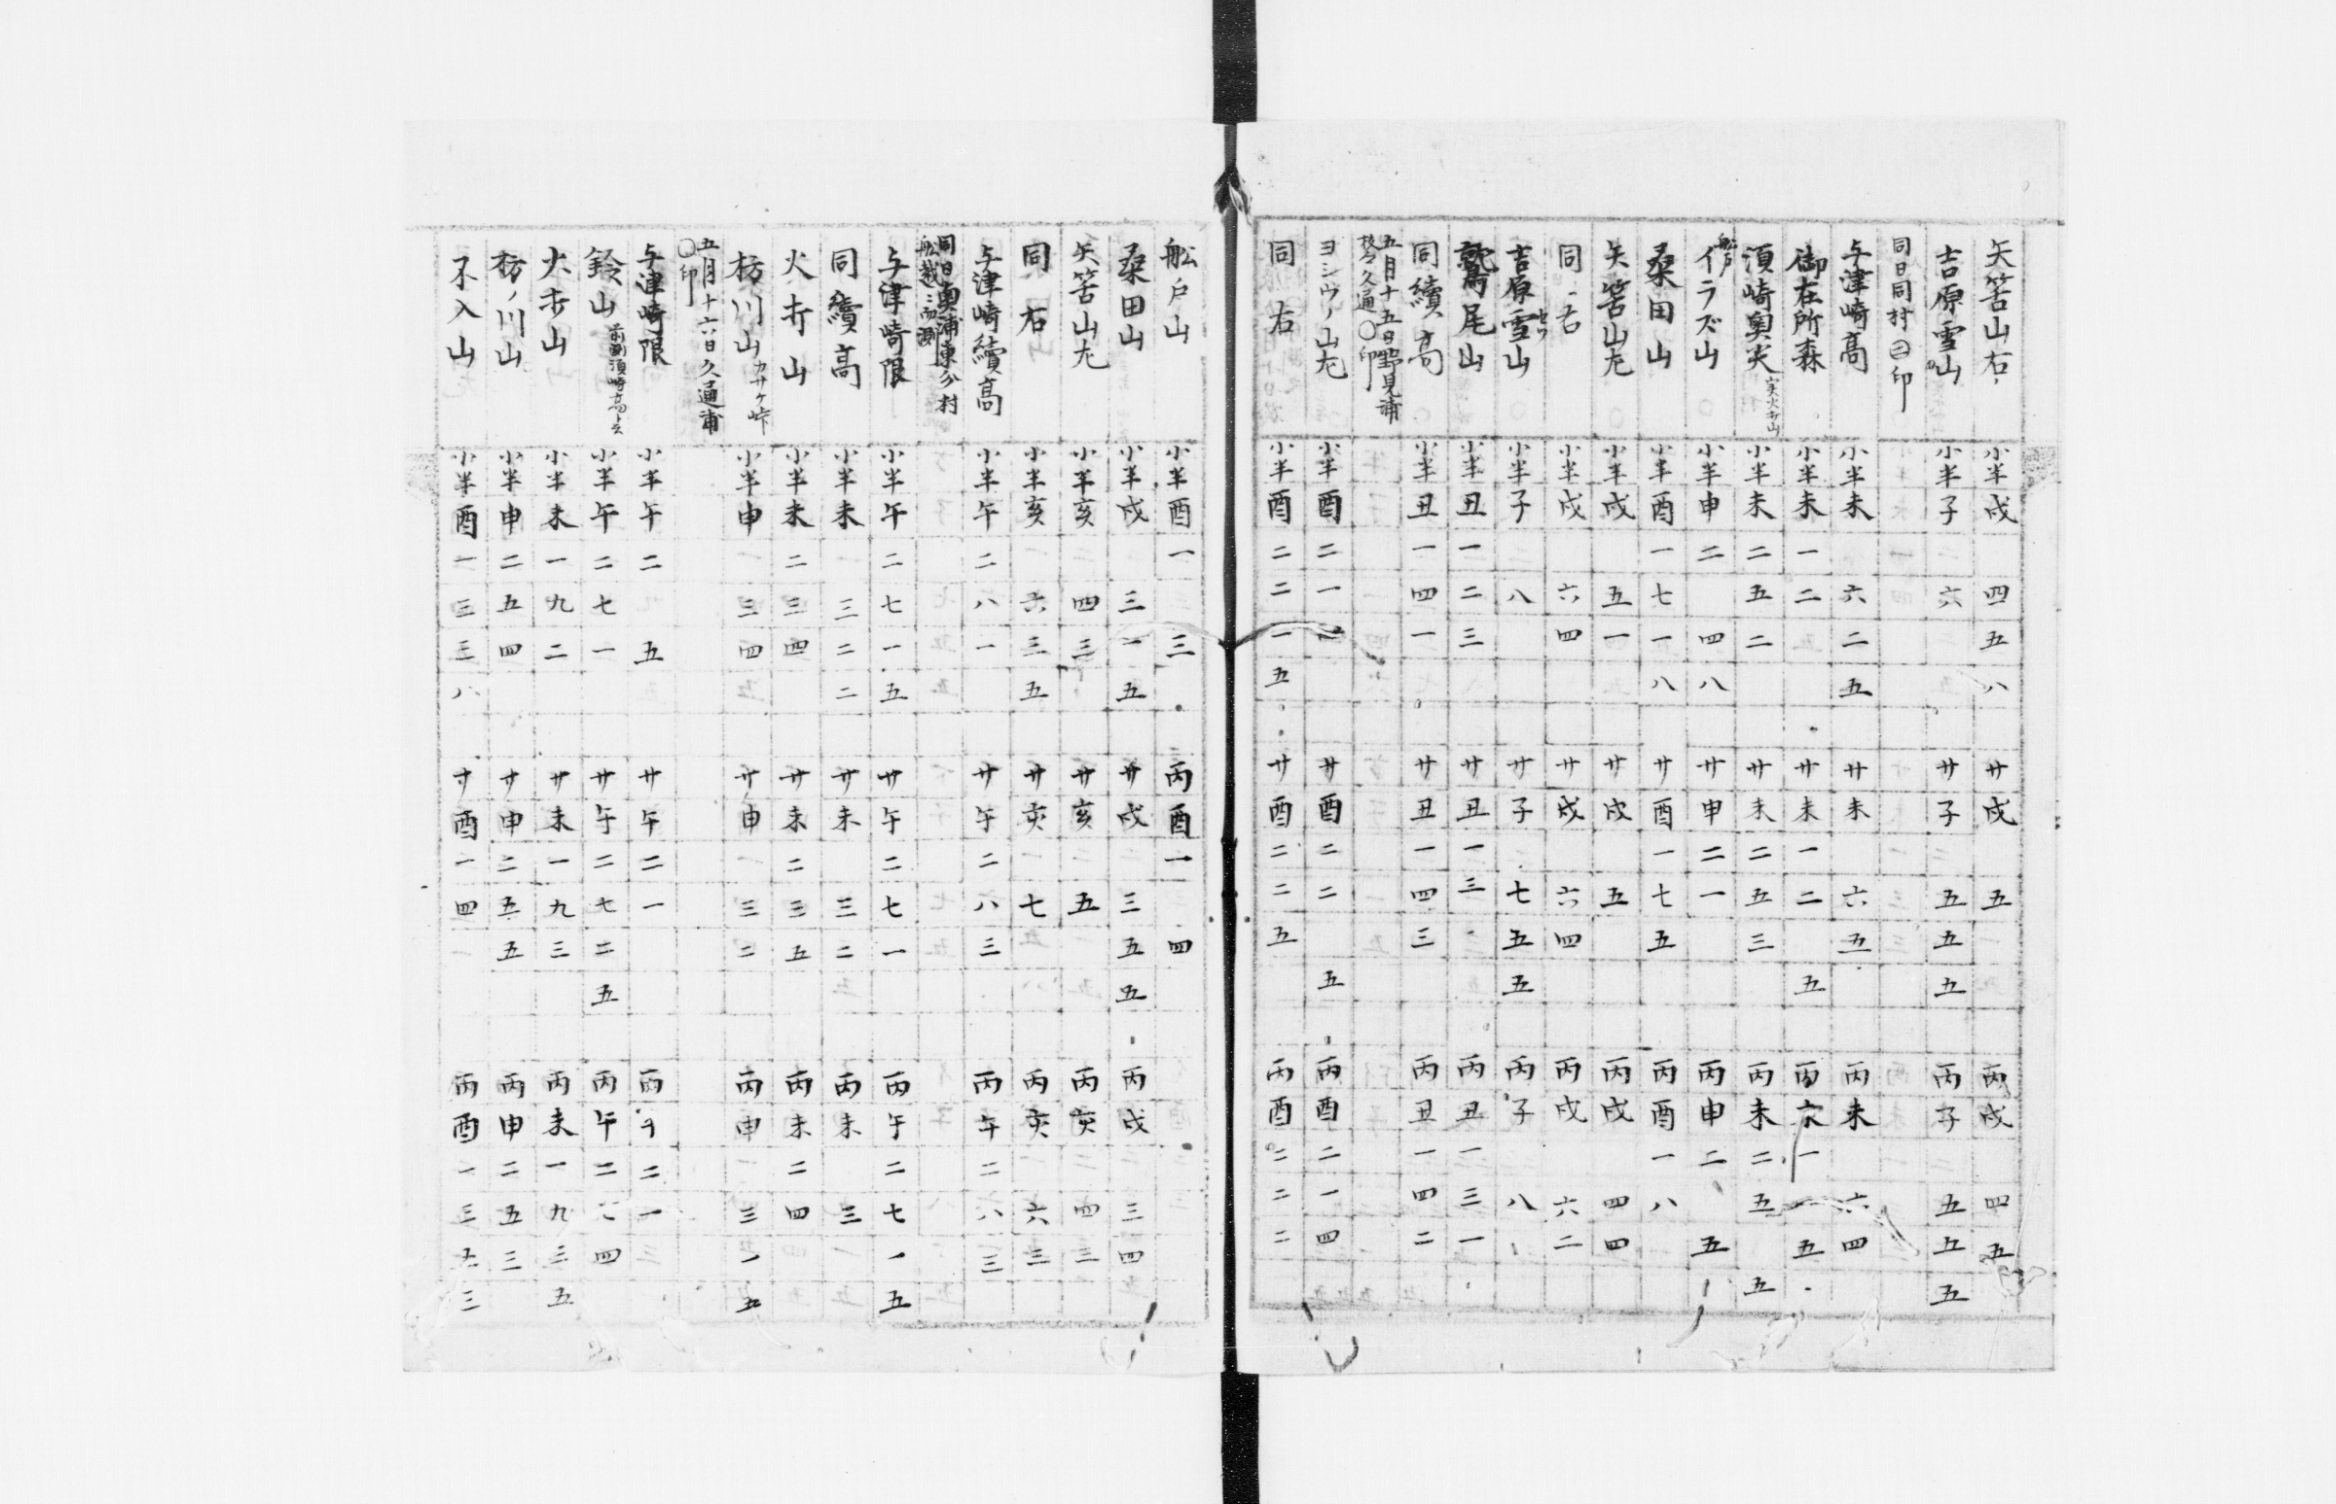 矢筈山右 小半戌 四五八 廿戌 五 丙戌 四五
吉原雪山 小半子 六 廿子 五五五 丙子 五五五
同日同村㊁印
与津崎高 小半未 六二五 廿未 六五 丙未 六四
御在所森 小半未一二 廿未一二 五 丙未一一五
須崎奥尖 実火打山 小半未二五二 廿未二五三 丙未二五 五
船戸 イラズ山 小半申二 四八 廿申二一 丙申二 五
桑田山 小半酉一七一八 廿酉一七五 丙酉一八
矢筈山左 小半戌 五一 廿戌 五 丙戌 四四
同 右 小半戌 六四 廿戌 六四 丙戌 六二
吉原雪山 小半子 八 廿子 七五五 丙子 八
鷲尾山 小半丑一二三 廿丑一三 丙丑一三一
同續高 小半丑一四一 廿丑一四三 丙丑一四二
五月十五日野見浦
枝久通〇印
ヨシウノ山左 小半酉二一 廿酉二二 五 丙酉二一四
同 右 小半酉二二一五 廿酉二二五 丙酉二二二
船戸山 小半酉一 三 丙酉一 四
桑田山 小半戌 三一五 廿戌 三五五 丙戌 三四
矢筈山左 小半亥 四三 廿亥 五 丙亥 四三
同 右 小半亥 六三五 廿亥 七 丙亥 六三
与津崎續高 小半午二八一 廿午二八三 丙午二八三
同日奥浦東分村
船越ニ而測
与津崎限 小半午二七一五 廿午二七一 丙午二七一五
同續高 小半未 三二二 廿未 三二 丙未 三
火打山 小半未二三四 廿未二三五 丙未二四
枋川山 カサケ峠 小半申 三四 廿申 三二 丙申 三一五
五月十六日久通浦
〇印
与津崎限 小半午二 五 廿午二一 丙午二一
鈴山 前測須崎高ト云 小半午二七一 廿午二七二五 丙午二七四
火打山 小半未一九二 廿未一九三 丙未一九三五
枋ノ川山 小半申二五四 廿申二五五 丙申二五三
不入山 小半酉一三三八 廿酉一四一 丙酉一三 三